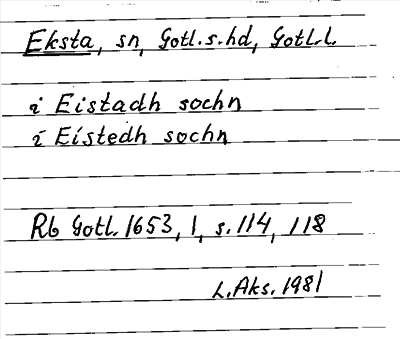 Eksta, sn, Gotl. s. hd, Gotl. l.
i Eistadh sochn
i Eistedh sochn
Rb Gotl. 1653, 1, s. 114, 118
L. Aks. 1981